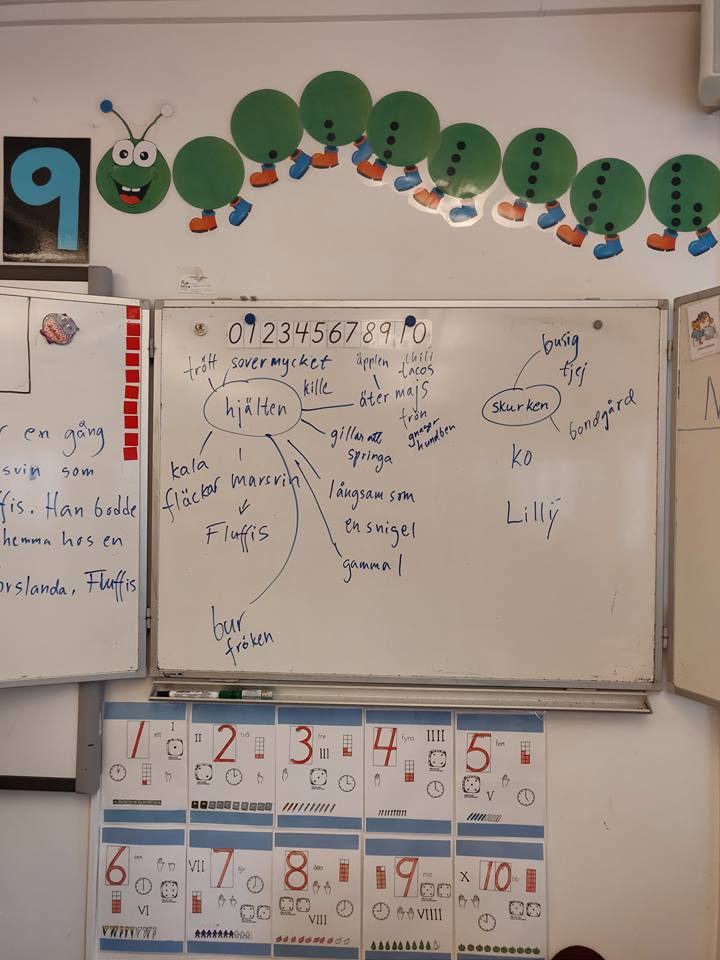 9
0 1 2 3 4 5 6 7 8 9 10
trött
sover mycket
kille
äpplen
chili
tacos
hjälten
äter majs
frön
gnager
hundben
gillar att
springa
kala
fläckar
marsvin
Fluffis
långsam som
en snigel
gammal
bur
fröken
busig
tjej
skurken
bondgård
ko
Lilly
en gång
svin som
fis. Han bodde
hemma hos en
orslanda, Fluffis
1 ett I
II 2 två
3 tre III
4 fyra IIII
5 fem V
6 sex VI
VII 7 sju
8 åtta VIII
9 nio VIIII
X 10 tio